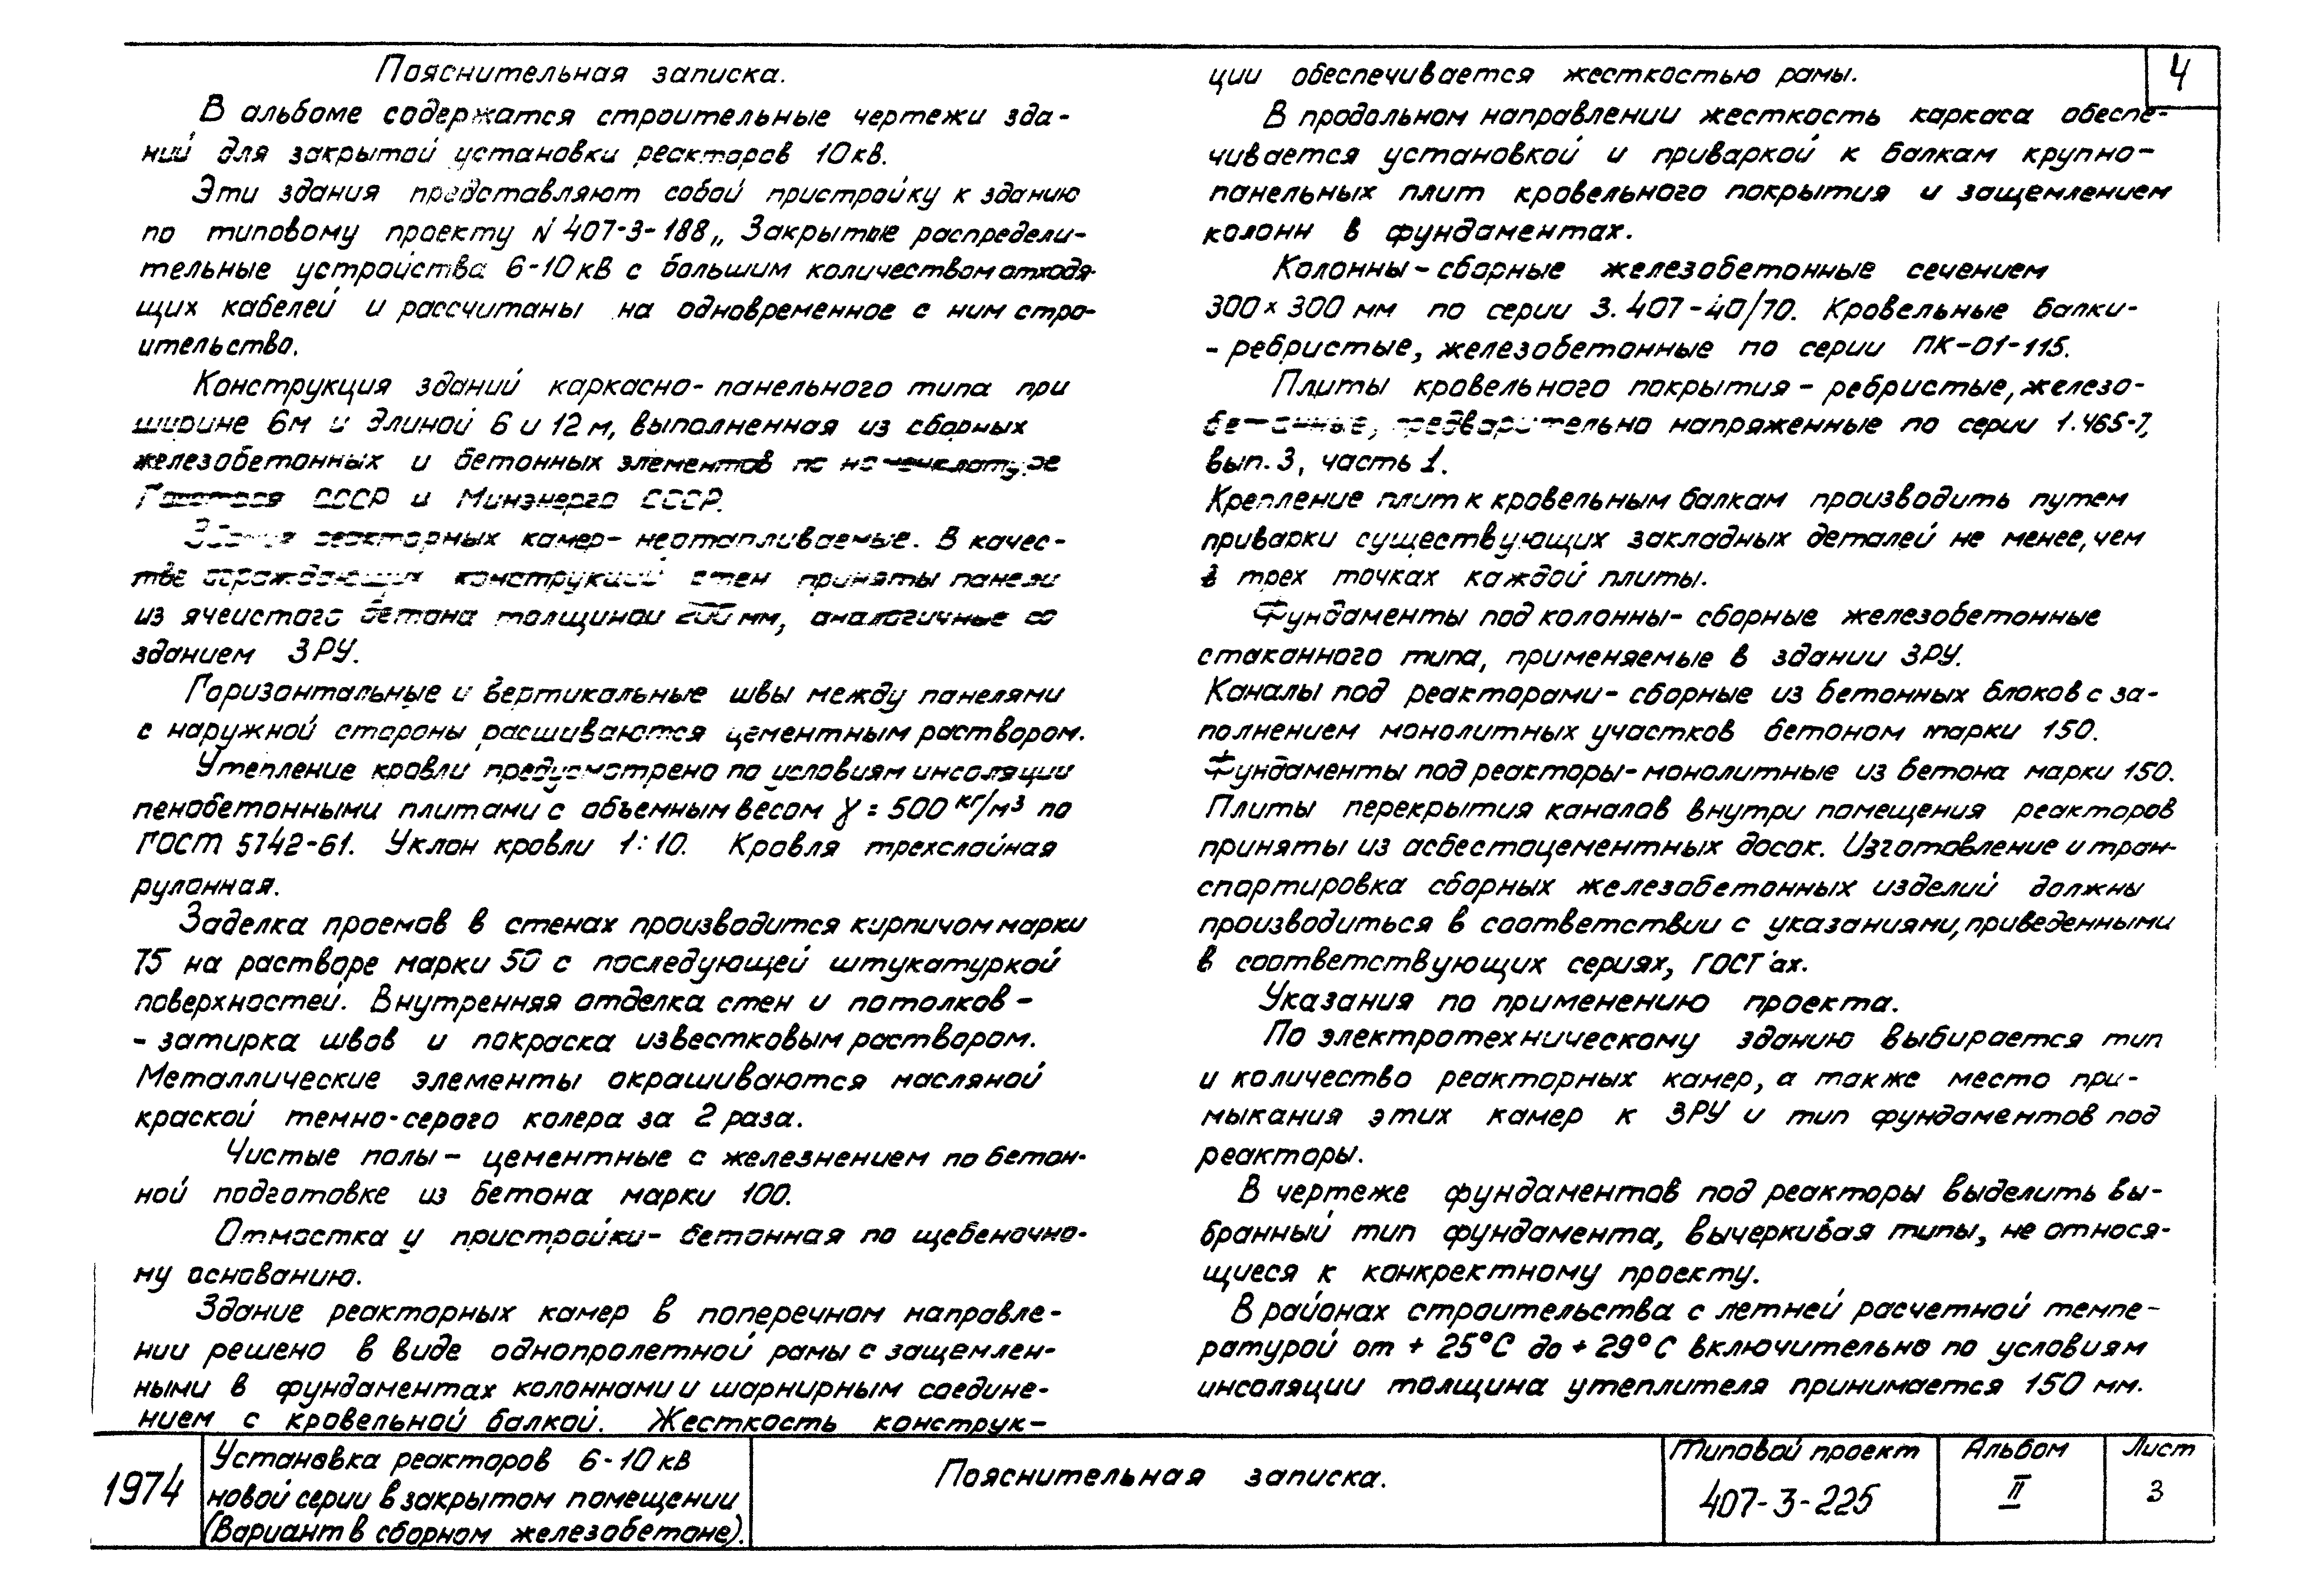 Пояснительная записка.
В альбоме содержатся строительные чертежи зда-
ний для закрытой установки реакторов 10кв.
Эти здания представляют собой пристройку к зданию
по типовому проекту N 407-3-188 „Закрытые распредели-
тельные устройства 6-10кВ с большим количеством отходя-
щих кабелей и рассчитаны на одновременное с ним стро-
ительство.
Конструкция зданий каркасно-панельного типа при
ширине 6м и длиной 6 и 12м, выполненная из сборных
железобетонных и бетонных элементов по номенклатуре
Госстроя СССР и Минэнерго СССР.
Здания реакторных камер- неотапливаемые. В качес-
тве ограждающих конструкций стен приняты панели
из ячеистого бетона толщиной 200мм, аналогичные со
зданием ЗРУ.
Горизонтальные и вертикальные швы между панелями
с наружной стороны расшиваются цементным раствором.
Утепление кровли предусмотрено по условиям инсоляции
пенобетонными плитами с объемным весом γ = 500 кг/м³ по
ГОСТ 5742-61. Уклон кровли 1:10. Кровля трехслойная
рулонная.
Заделка проемов в стенах производится кирпичом марки
75 на растворе марки 50 с последующей штукатуркой
поверхностей. Внутренняя отделка стен и потолков -
- затирка швов и покраска известковым раствором.
Металлические элементы окрашиваются масляной
краской темно-серого колера за 2 раза.
Чистые полы - цементные с железнением по бетон-
ной подготовке из бетона марки 100.
Отмостка у пристройки- бетонная по щебеночно-
му основанию.
Здание реакторных камер в поперечном направле-
нии решено в виде однопролетной рамы с защемлен-
ными в фундаментах колоннами и шарнирным соедине-
нием с кровельной балкой. Жесткость конструк-
ции обеспечивается жесткостью рамы.
В продольном направлении жесткость каркаса обеспе-
чивается установкой и приваркой к балкам крупно-
панельных плит кровельного покрытия и защемлением
колонн в фундаментах.
Колонны - сборные железобетонные сечением
300×300 мм по серии 3.407-40/70. Кровельные балки-
- ребристые, железобетонные по серии ПК-01-115.
Плиты кровельного покрытия - ребристые, железо-
бетонные, предварительно напряженные по серии 1.465-7,
вып.3, часть 1.
Крепление плит к кровельным балкам производить путем
приварки существующих закладных деталей не менее, чем
в трех точках каждой плиты.
Фундаменты под колонны- сборные железобетонные
стаканного типа, применяемые в здании ЗРУ.
Каналы под реакторами- сборные из бетонных блоков с за-
полнением монолитных участков бетоном марки 150.
Фундаменты под реакторы-монолитные из бетона марки 150.
Плиты перекрытия каналов внутри помещения реакторов
приняты из асбестоцементных досок. Изготовление и тран-
спортировка сборных железобетонных изделий должны
производиться в соответствии с указаниями, приведенными
в соответствующих сериях, ГОСТ'ах.
Указания по применению проекта.
По электротехническому зданию выбирается тип
и количество реакторных камер, а также место при-
мыкания этих камер к ЗРУ и тип фундаментов под
реакторы.
В чертеже фундаментов под реакторы выделить вы-
бранный тип фундамента, вычеркивая типы, не относя-
щиеся к конкректному проекту.
В районах строительства с летней расчетной темпе-
ратурой от + 25°С до + 29°С включительно по условиям
инсоляции толщина утеплителя принимается 150 мм.
4
1974
Установка реакторов 6-10кВ
новой серии в закрытом помещении
(Вариант в сборном железобетоне).
Пояснительная записка.
Типовой проект
407-3-225
Альбом
II
Лист
3